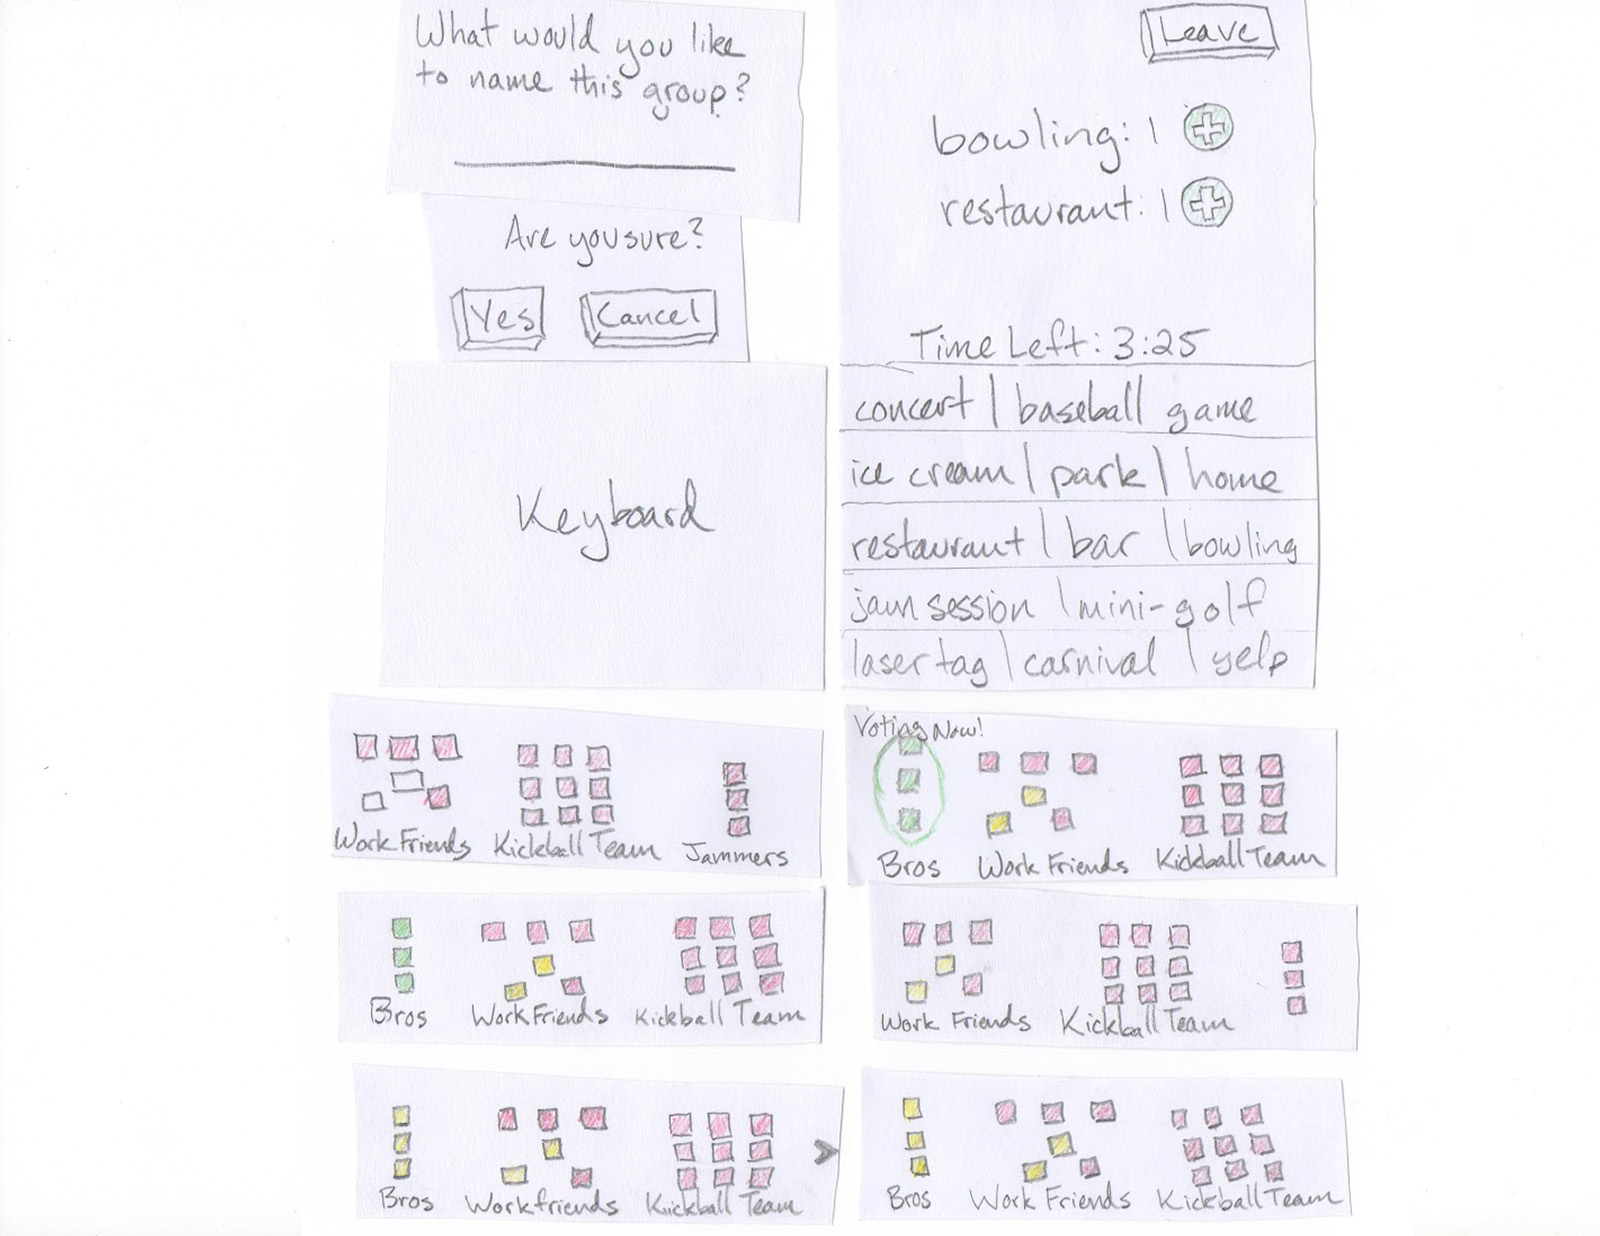 What would you like
to name this group?
Are you sure?
Yes
Cancel
Keyboard
Leave
bowling: 1
restaurant: 1
Time Left: 3:25
concert | baseball game
ice cream | park | home
restaurant | bar | bowling
jam session | mini-golf
laser tag | carnival | yelp
Work Friends Kickball Team Jammers
Voting Now!
Bros Work Friends Kickball Team
Bros Work Friends Kickball Team
Work Friends Kickball Team
Bros Workfriends Kickball Team >
Bros Work Friends Kickball Team